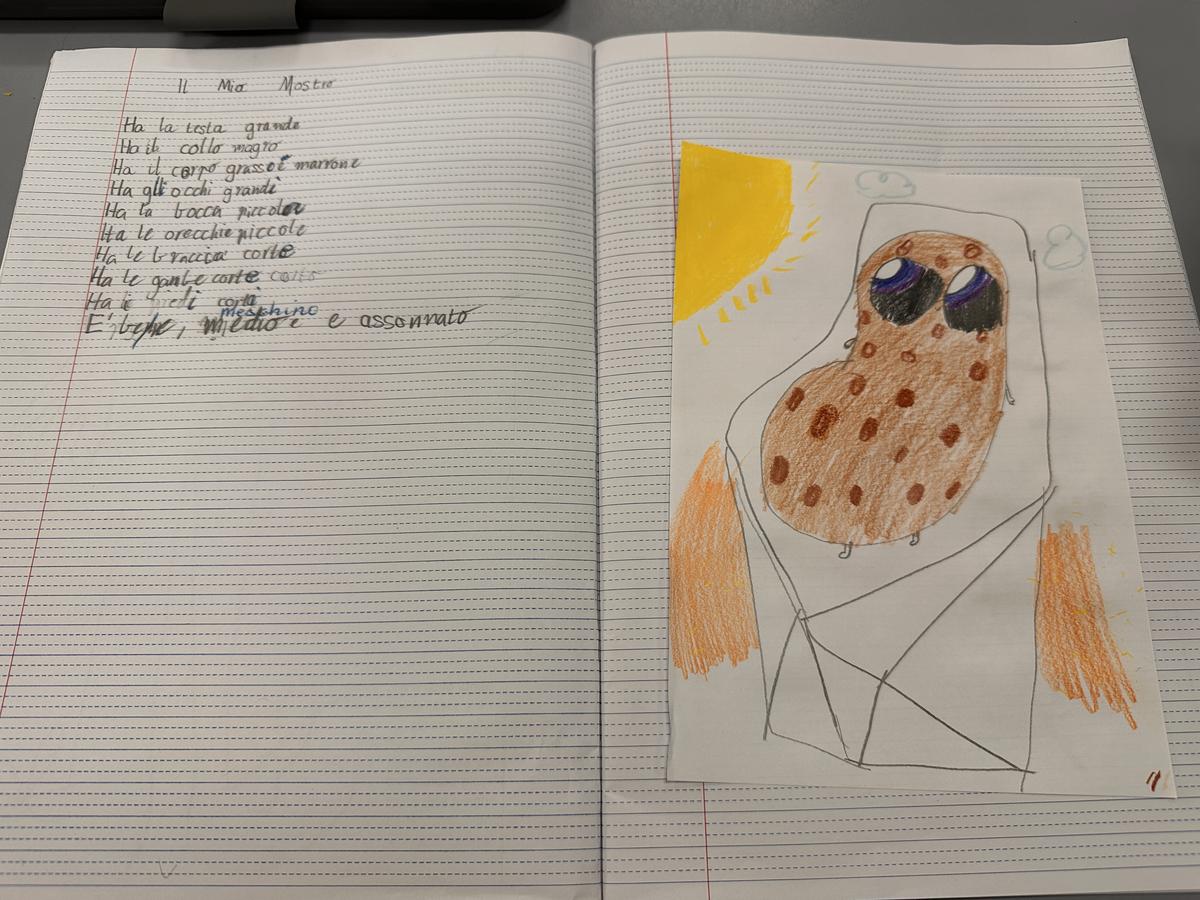 Il Mio Mostro
Ha la testa grande
Ha il collo magro
Ha il corpo grasso e marrone
Ha gli occhi grandi
Ha la bocca piccola
Ha le orecchie piccole
Ha le braccia corte
Ha le gambe corte
Ha i piedi corti
meschino
E', e assonnato